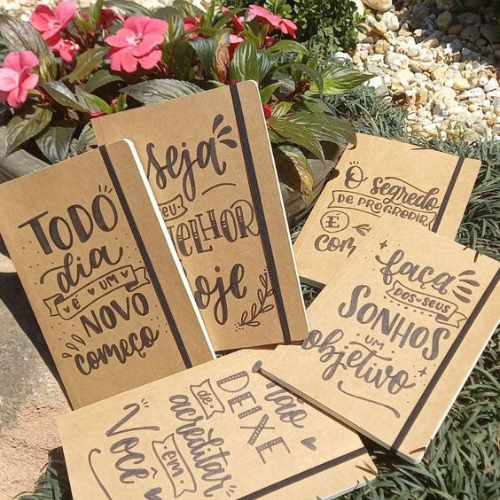 TODO
dia
é UM
NOVO
começo
seja
eu
ELHOR
oje
O segredo
DE PROGREDIR
É
com
faça
DOS SEUS
SONHOS
UM
objetivo
não
DEIXE
de
acreditar
em
Você